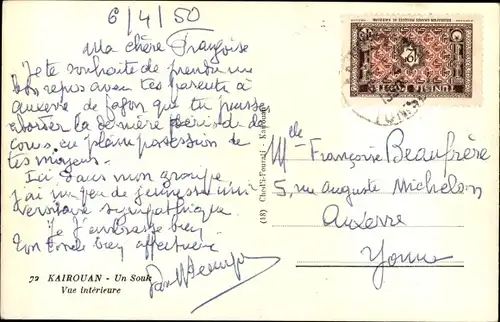 6/4/50
Ma chère Françoise
Je te souhaite de prendre un
bon repos avec tes parents à
auxerre de façon que tu puisses
aborter la dernière période de
cours en pleine possession de
tes moyens.
Ici dans mon groupe
j'ai un peu de jeunesse uni
versitaire sympathique
Je t'embrasse bien
Ton oncle bien affectueux
72 KAIROUAN - Un Souk
Vue intérieure
(18) Chedli-Fourati - Kairouan
TUNISIE
12
Mlle
Françoise Beaufrère
5, rue auguste Michelon
Auxerre
Yonne